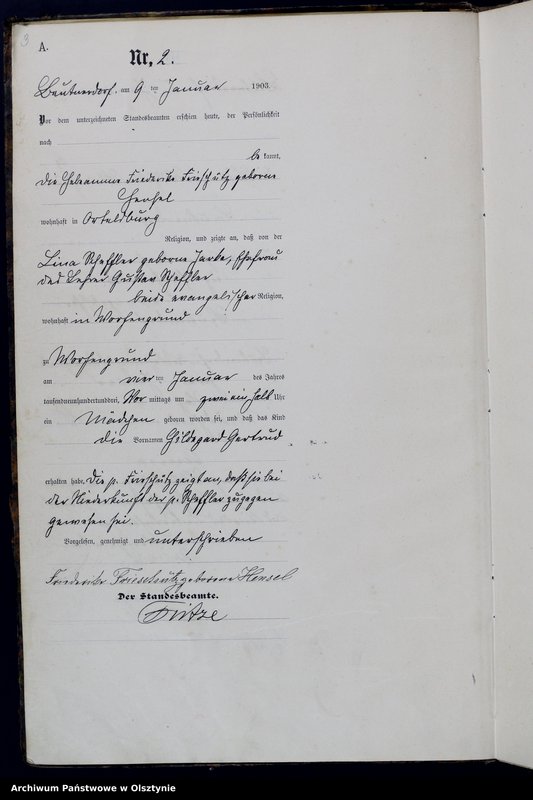 3
A.
Nr, 2.
Beutnerdorf, am 9 ten Januar 1903
Vor dem unterzeichneten Standesbeamten erschien heute, der Persönlichkeit
nach
be kannt,
die Hebeamme Friederike Frieschütz geborene
Hensel
wohnhaft in Ortelsburg
Religion, und zeigte an, daß von der
Lina Scheffler geborne Jarke, Ehefrau
des Lehrer Gustav Scheffler
beide evangelischer Religion,
wohnhaft in Worfengrund
zu Worfengrund
am vier ten Januar des Jahres
tausendneunhundertunddrei, Vor mittags um zwei ein halb Uhr
ein Mädchen geboren worden sei, und daß das Kind
die Vornamen Hildegard Gertrud
erhalten habe. Die p. Frieschütz zeigt an, daß sie bei
der Niederkunft der p. Scheffler zugegen
gewesen sei.
Vorgelesen, genehmigt und unterschrieben
Friederike Frieschütz geborene Hensel
Der Standesbeamte.
Archiwum Państwowe w Olsztynie